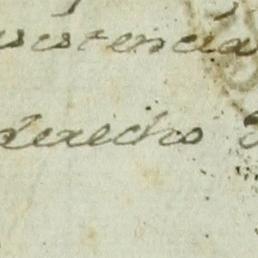 sistencia
derecho